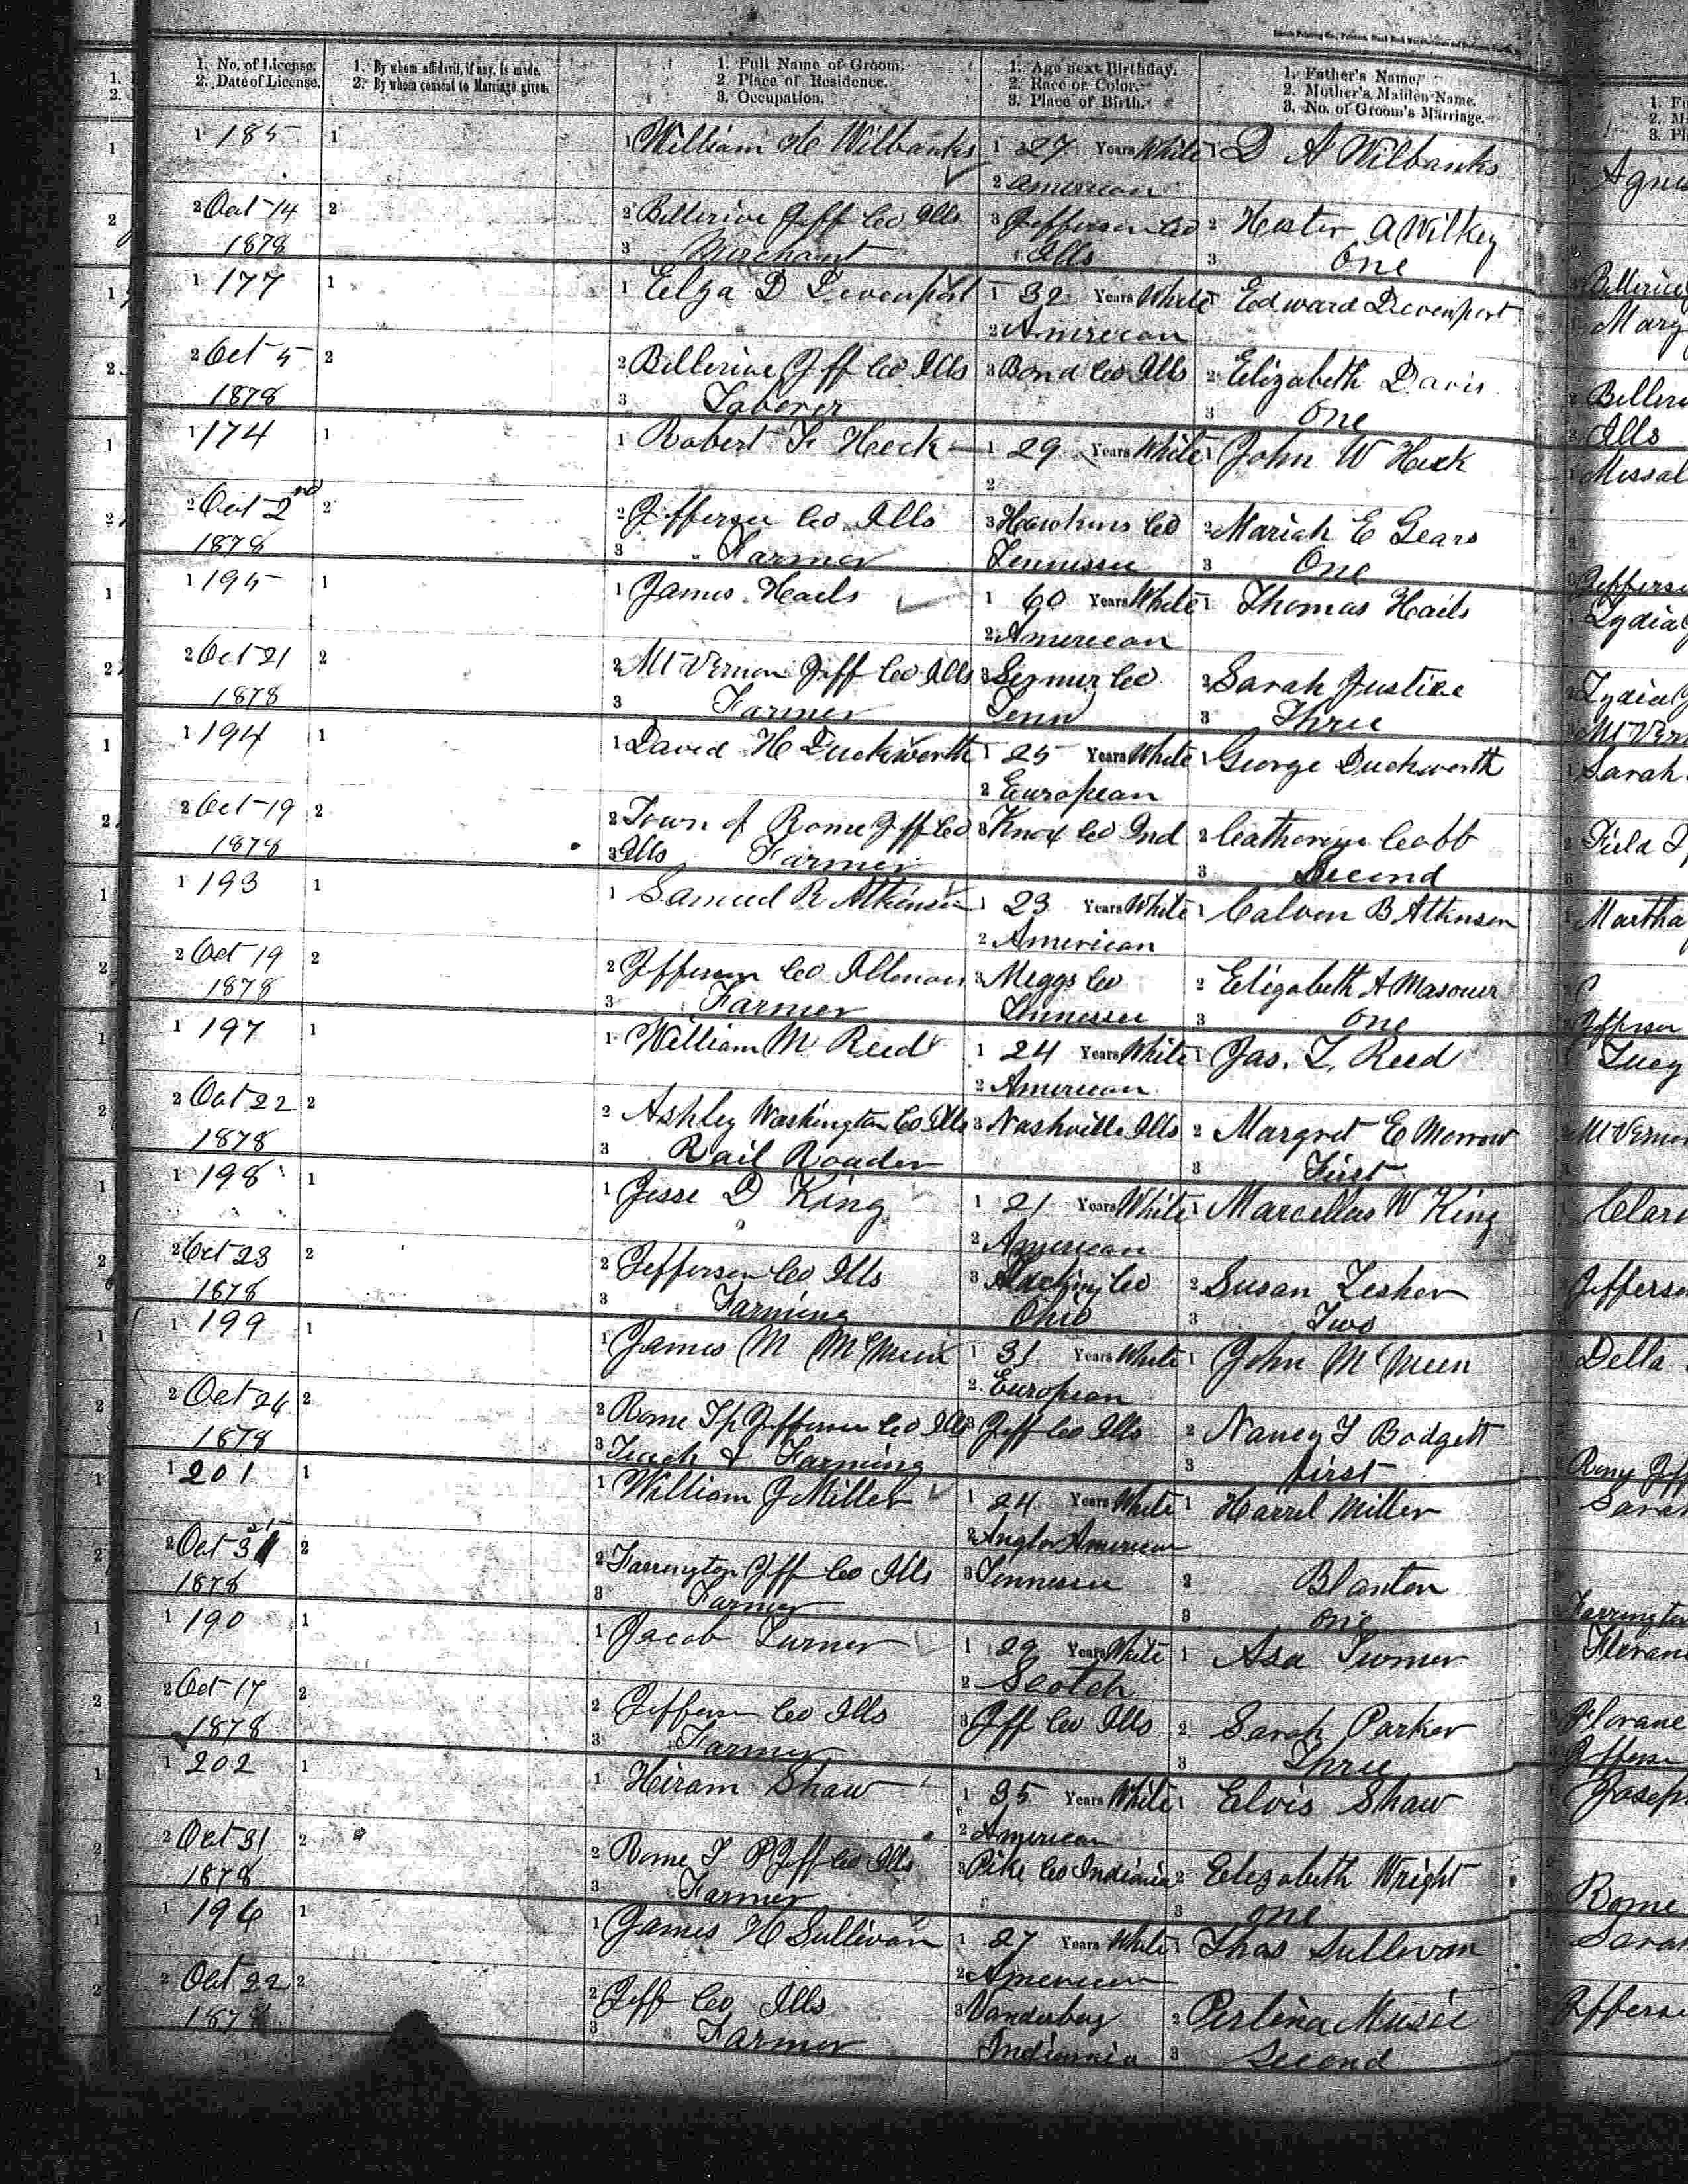 1. No. of License.
2. Date of License.
1. By whom affidavit, if any, is made.
2. By whom consent to Marriage given.
1. Full Name of Groom.
2 Place of Residence.
3. Occupation.
1. Age next Birthday.
2. Race or Color.
3. Place of Birth.
1. Father's Name.
2. Mother's Maiden Name.
3. No. of Groom's Marriage.
1 185 1 1 William H Wilbanks 1 27 Years White 1 D A Wilbanks
2 American
2 Oct 14 2 2 Bellerive Jeff Co Ills 3 Jefferson Co 2 Hester A Wilkey
1878 3 Merchant Ills 3 One
1 177 1 1 Elza D Devenport 1 32 Years White 1 Edward Devenport
2 American
2 Oct 5 2 2 Bellerive Jeff Co Ills 3 Bond Co Ills 2 Elizabeth Davis
1878 3 Laborer 3 One
1 174 1 1 Robert F Heck 1 29 Years White 1 John W Heck
2
2 Oct 2nd 2 2 Jefferson Co Ills 3 Hawkins Co 2 Mariah E Sears
1878 3 Farmer Tennessee 3 One
1 195 1 1 James Hails 1 60 Years White 1 Thomas Hails
2 American
2 Oct 21 2 2 Mt Vernon Jeff Co Ills 3 Co 2 Sarah Justice
1878 3 Farmer Tenn 3 Three
1 194 1 1 David H Duckworth 1 25 Years White 1 George Duckworth
2 European
2 Oct 19 2 2 Town of Rome Jeff Co 3 Knox Co Ind 2 Catherine Cobb
1878 3 Ills Farmer 3 Second
1 193 1 1 Samuel R Atkinson 1 23 Years White 1 Calven B Atkinson
2 American
2 Oct 19 2 2 Jefferson Co Illenois 3 Meggs Co 2 Elizabeth A Masoner
1878 3 Farmer Tennessee 3 One
1 197 1 1 William M Reed 1 24 Years White 1 Jas. L. Reed
2 American
2 Oct 22 2 2 Ashley Washington Co Ills 3 Nashville Ills 2 Margret E Morrow
1878 3 Rail Roader 3 First
1 198 1 1 Jesse D King 1 21 Years White 1 Marcellas W King
2 American
2 Oct 23 2 2 Jefferson Co Ills 3 Co 2 Susan Lesher
1878 3 Farming Ohio 3 Two
1 199 1 1 James M McMeen 1 31 Years White 1 John McMeen
2 European
2 Oct 24 2 2 Rome Tp Jefferson Co Ills 3 Jeff Co Ills 2 Nancy J Bodgett
1878 3 Teach & Farming 3 first
1 201 1 1 William J Miller 1 24 Years White 1 Harrel Miller
2 Anglo American
2 Oct 31 2 2 Farrington Jeff Co Ills 3 Tennessee 2 Blanton
1878 3 Farmer 3 one
1 190 1 1 Jacob Turner 1 29 Years White 1 Asa Turner
2 Scotch
2 Oct 17 2 2 Jefferson Co Ills 3 Jeff Co Ills 2 Sarah Parker
1878 3 Farmer 3 Three
1 202 1 1 Hiram Shaw 1 35 Years White 1 Elvis Shaw
2 American
2 Oct 31 2 2 Rome T P Jeff Co Ills 3 Pike Co Indiania 2 Elezabeth Wright
1878 3 Farmer 3 one
1 196 1 1 James H Sullivan 1 27 Years White 1 Thos Sullivan
2 American
2 Oct 22 2 2 Jeff Co Ills 3 Vanderberg 2 Perlina Music
1878 3 Farmer Indiania 3 Second